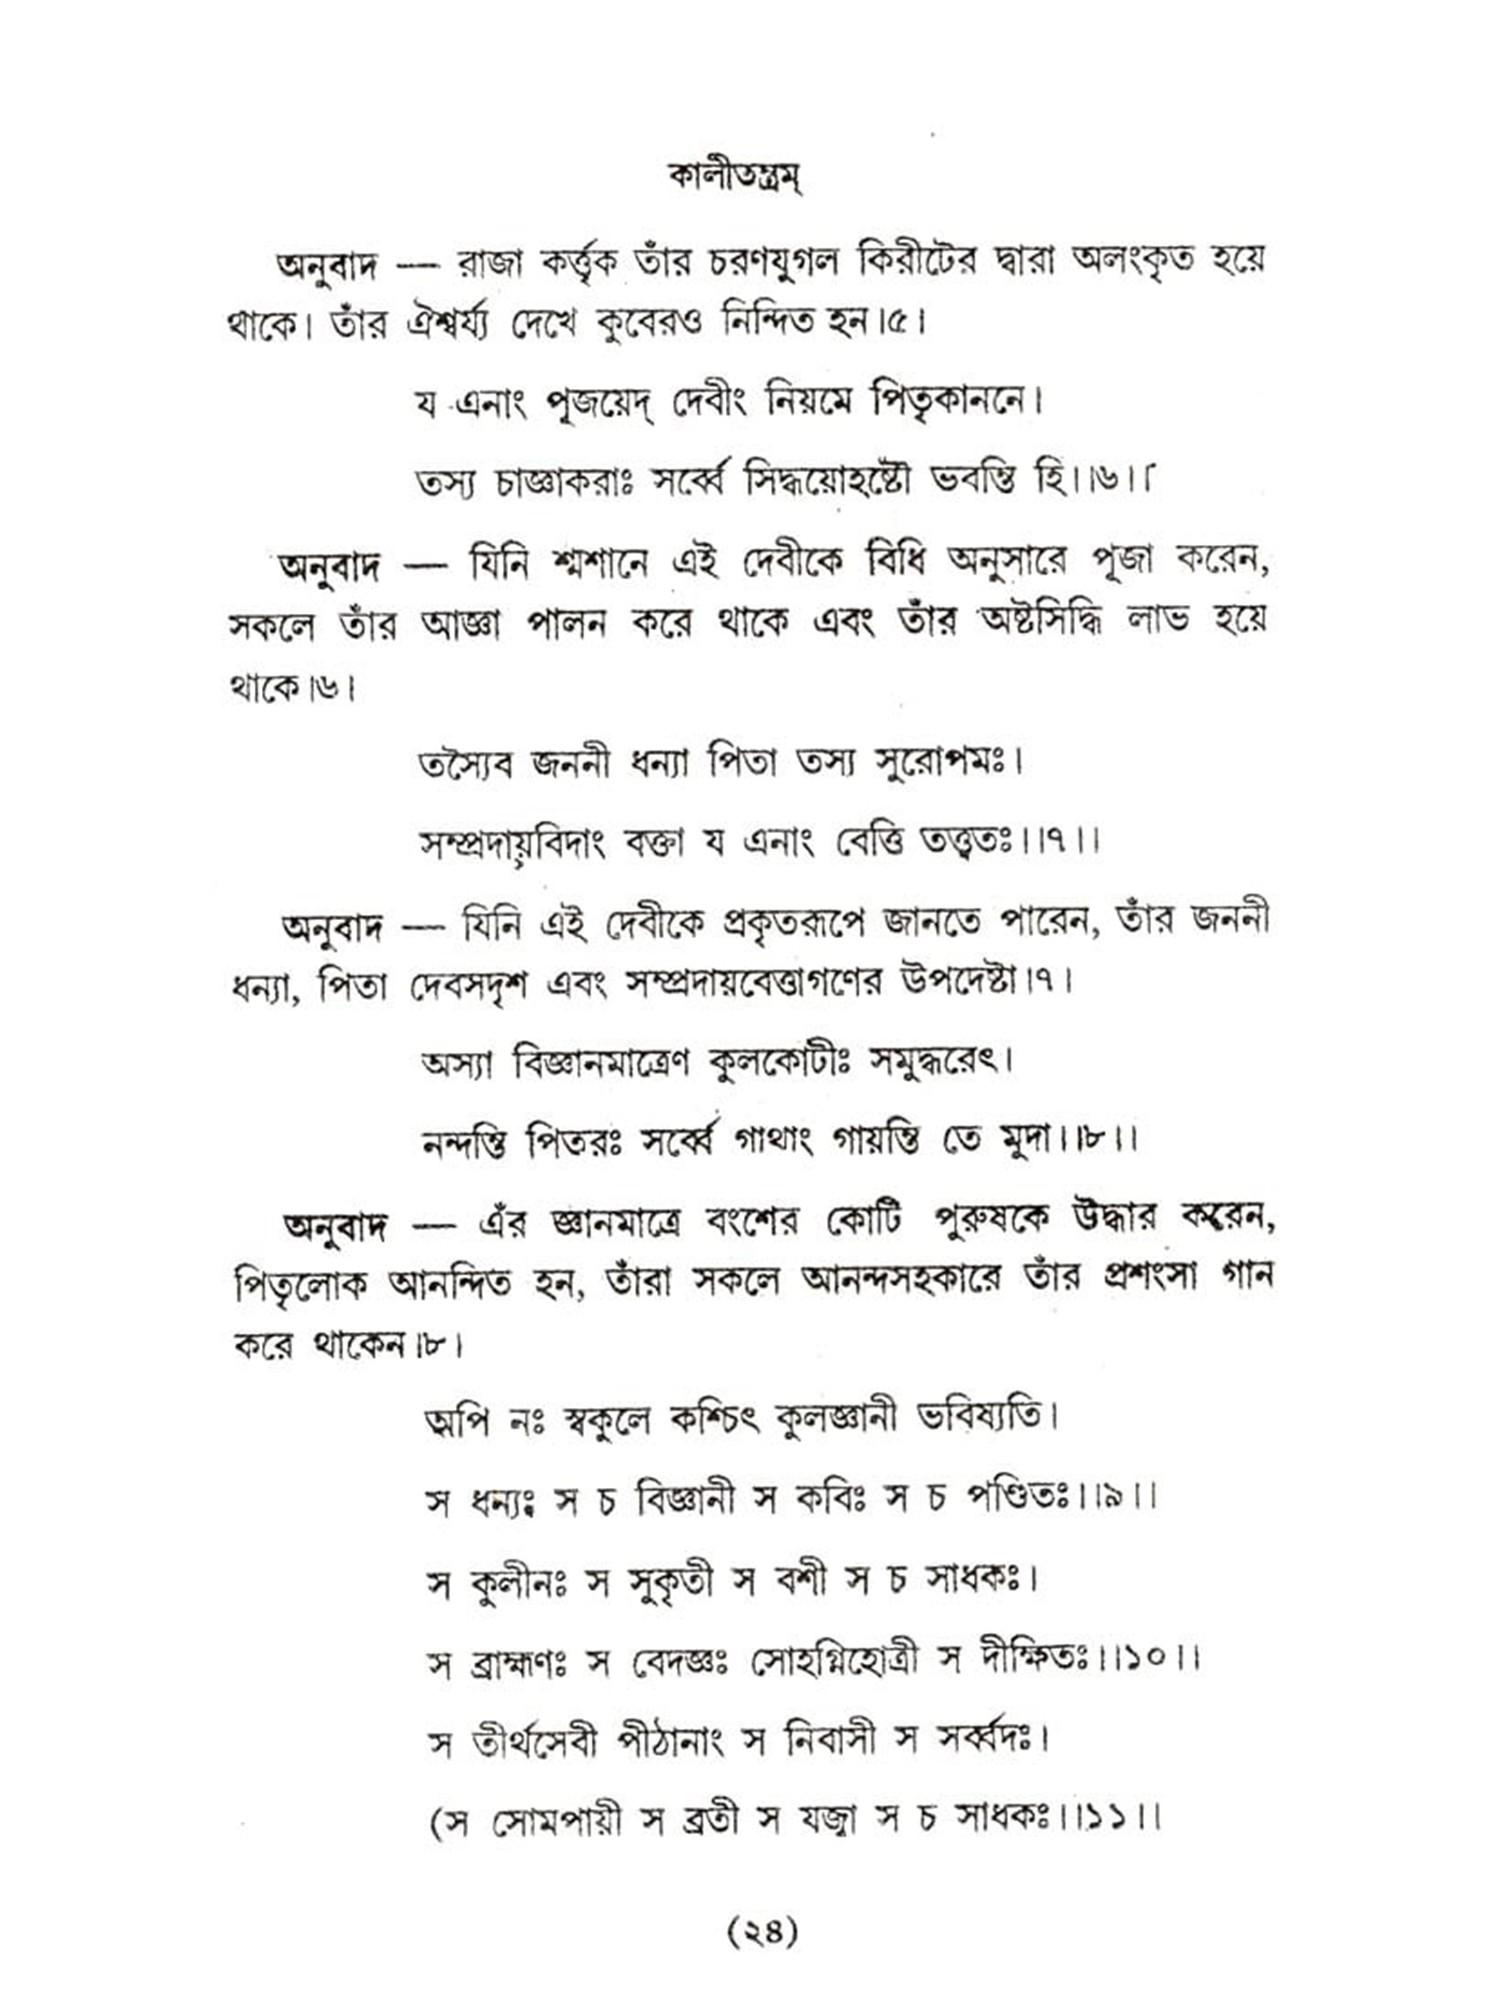 কালীতন্ত্রম্
অনুবাদ — রাজা কর্ত্তৃক তাঁর চরণযুগল কিরীটের দ্বারা অলংকৃত হয়ে
থাকে। তাঁর ঐশ্বর্য্য দেখে কুবেরও নিন্দিত হন।৫।
য এনাং পূজয়েদ্ দেবীং নিয়মে পিতৃকাননে।
তস্য চাজ্ঞাকরাঃ সর্ব্বে সিদ্ধয়োহষ্টৌ ভবন্তি হি।।৬।।
অনুবাদ — যিনি শ্মশানে এই দেবীকে বিধি অনুসারে পূজা করেন,
সকলে তাঁর আজ্ঞা পালন করে থাকে এবং তাঁর অষ্টসিদ্ধি লাভ হয়ে
থাকে।৬।
তস্যৈব জননী ধন্যা পিতা তস্য সুরোপমঃ।
সম্প্রদায়বিদাং বক্তা য এনাং বেত্তি তত্ত্বতঃ।।৭।।
অনুবাদ — যিনি এই দেবীকে প্রকৃতরূপে জানতে পারেন, তাঁর জননী
ধন্যা, পিতা দেবসদৃশ এবং সম্প্রদায়বেত্তাগণের উপদেষ্টা।৭।
অস্যা বিজ্ঞানমাত্রেণ কুলকোটীঃ সমুদ্ধরেৎ।
নন্দন্তি পিতরঃ সর্ব্বে গাথাং গায়ন্তি তে মুদা।।৮।।
অনুবাদ — এঁর জ্ঞানমাত্রে বংশের কোটি পুরুষকে উদ্ধার করেন,
পিতৃলোক আনন্দিত হন, তাঁরা সকলে আনন্দসহকারে তাঁর প্রশংসা গান
করে থাকেন।৮।
অপি নঃ স্বকুলে কশ্চিৎ কুলজ্ঞানী ভবিষ্যতি।
স ধন্যঃ স চ বিজ্ঞানী স কবিঃ স চ পণ্ডিতঃ।।৯।।
স কুলীনঃ স সুকৃতী স বশী স চ সাধকঃ।
স ব্রাহ্মণঃ স বেদজ্ঞঃ সোহগ্নিহোত্রী স দীক্ষিতঃ।।১০।।
স তীর্থসেবী পীঠানাং স নিবাসী স সর্ব্বদঃ।
(স সোমপায়ী স ব্রতী স যজ্বা স চ সাধকঃ।।১১।।
(২৪)